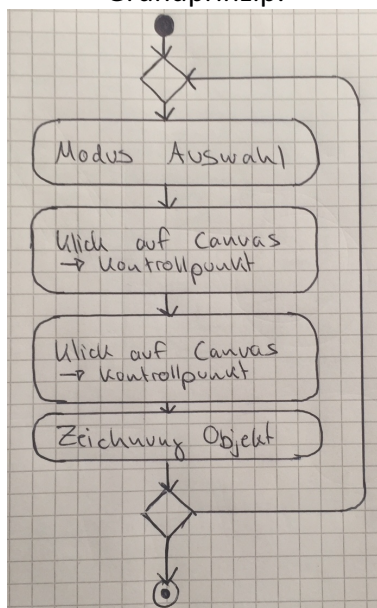 Grundprinzip:
Modus Auswahl
Klick auf Canvas
→ Kontrollpunkt
Klick auf Canvas
→ Kontrollpunkt
Zeichnung Objekt